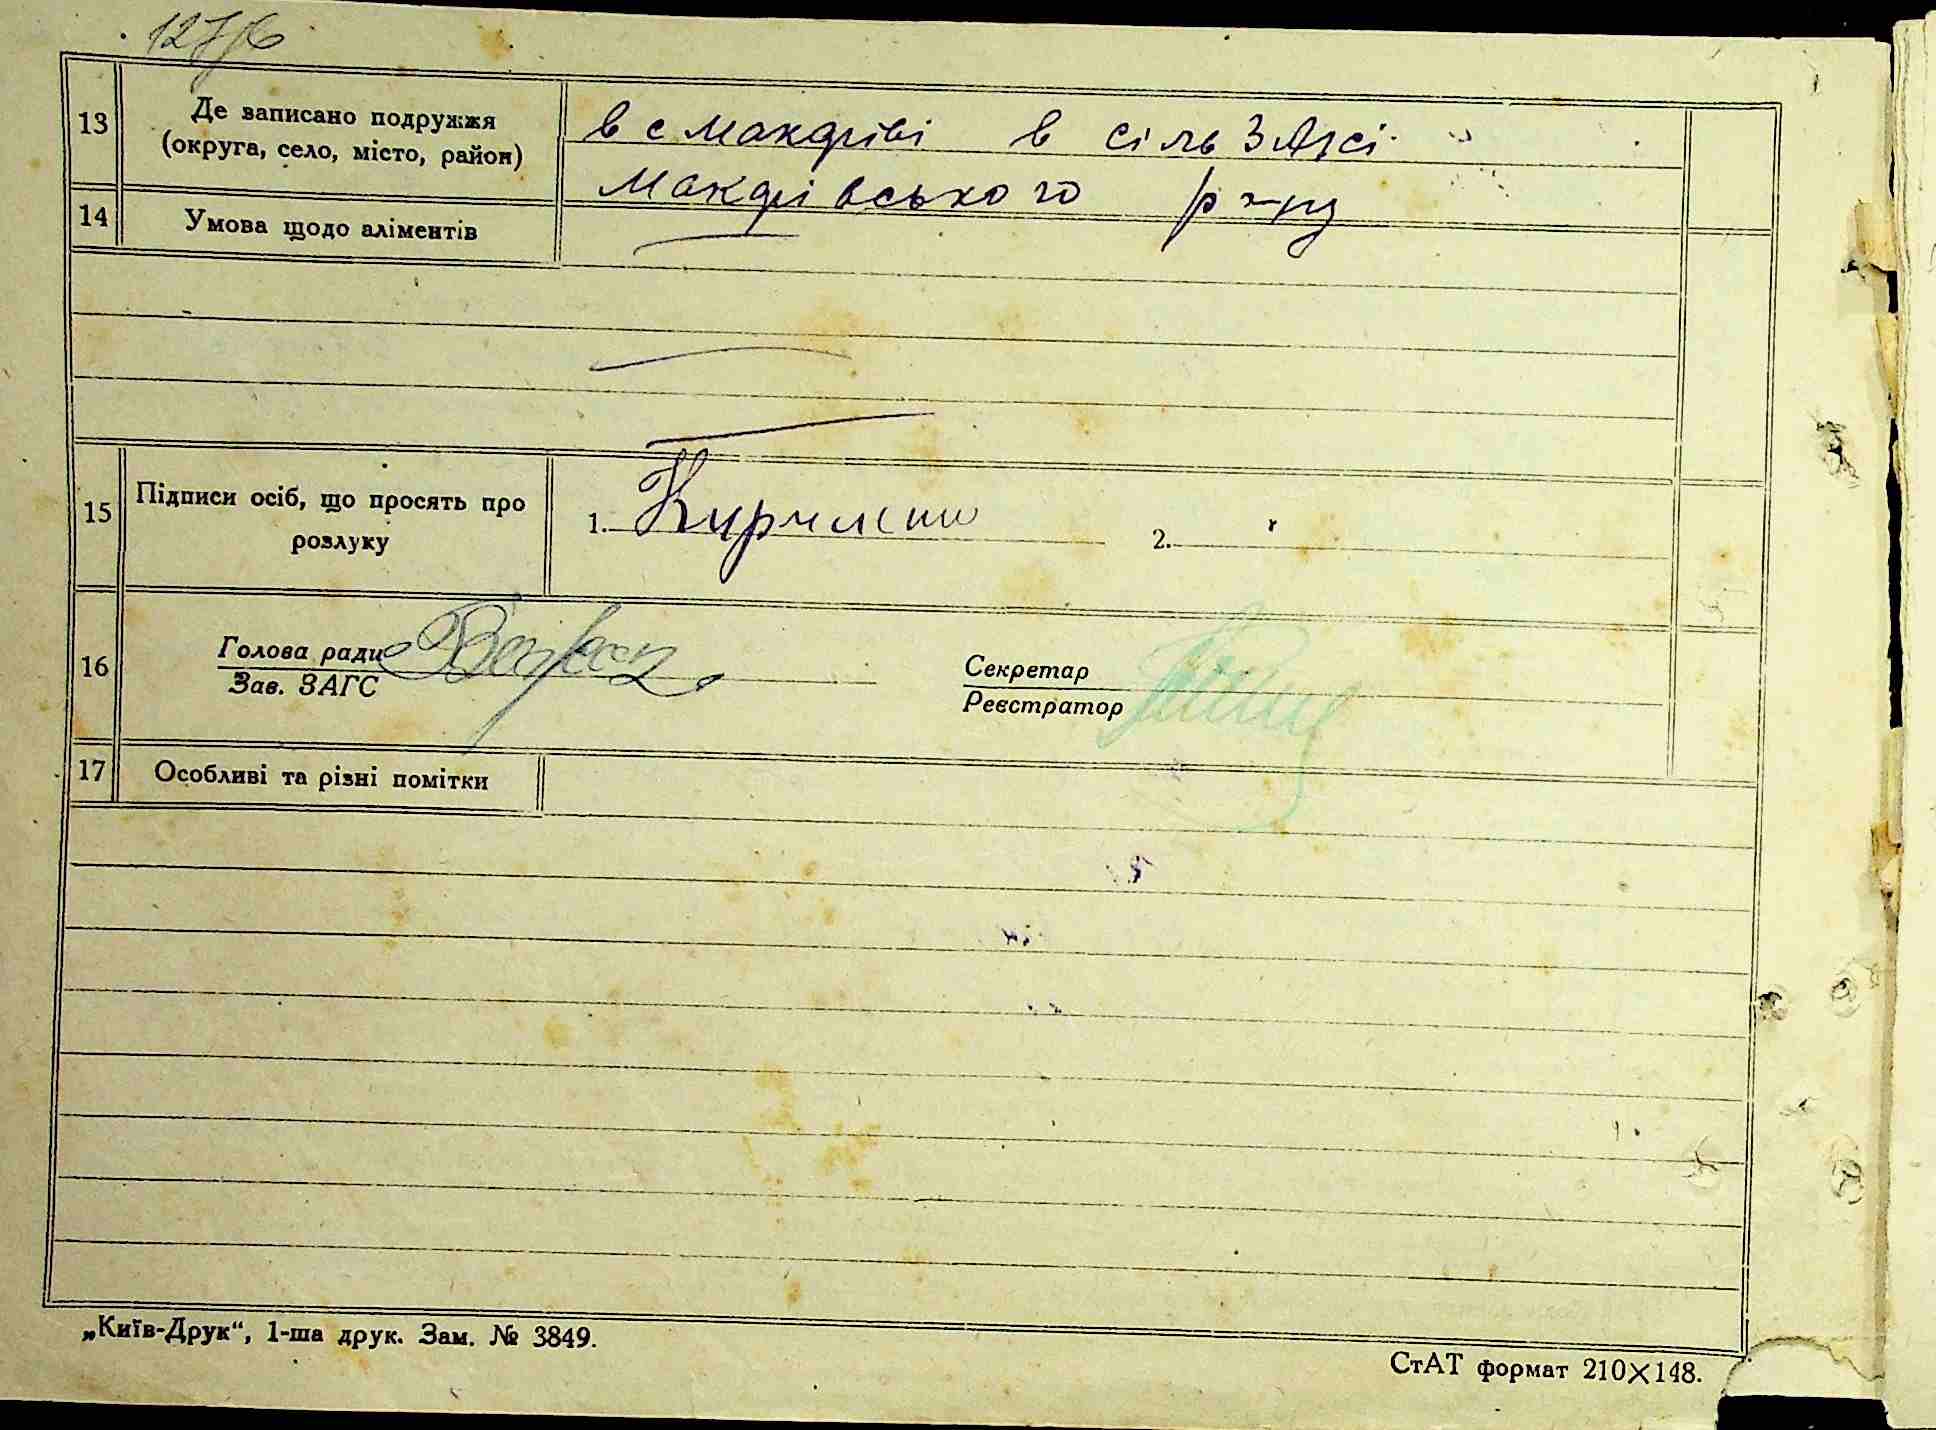 127/б
13
Де записано подружжя
(округа, село, місто, район)
в с Макарові в сіль Загсі
Макарівського р-ну
14
Умова щодо аліментів
15
Підписи осіб, що просять про
розлуку
1.
2.
16
Голова ради
Зав. ЗАГС
Секретар
Реєстратор
17
Особливі та різні помітки
„Київ-Друк“, 1-ша друк. Зам. № 3849.
СтАТ формат 210×148.